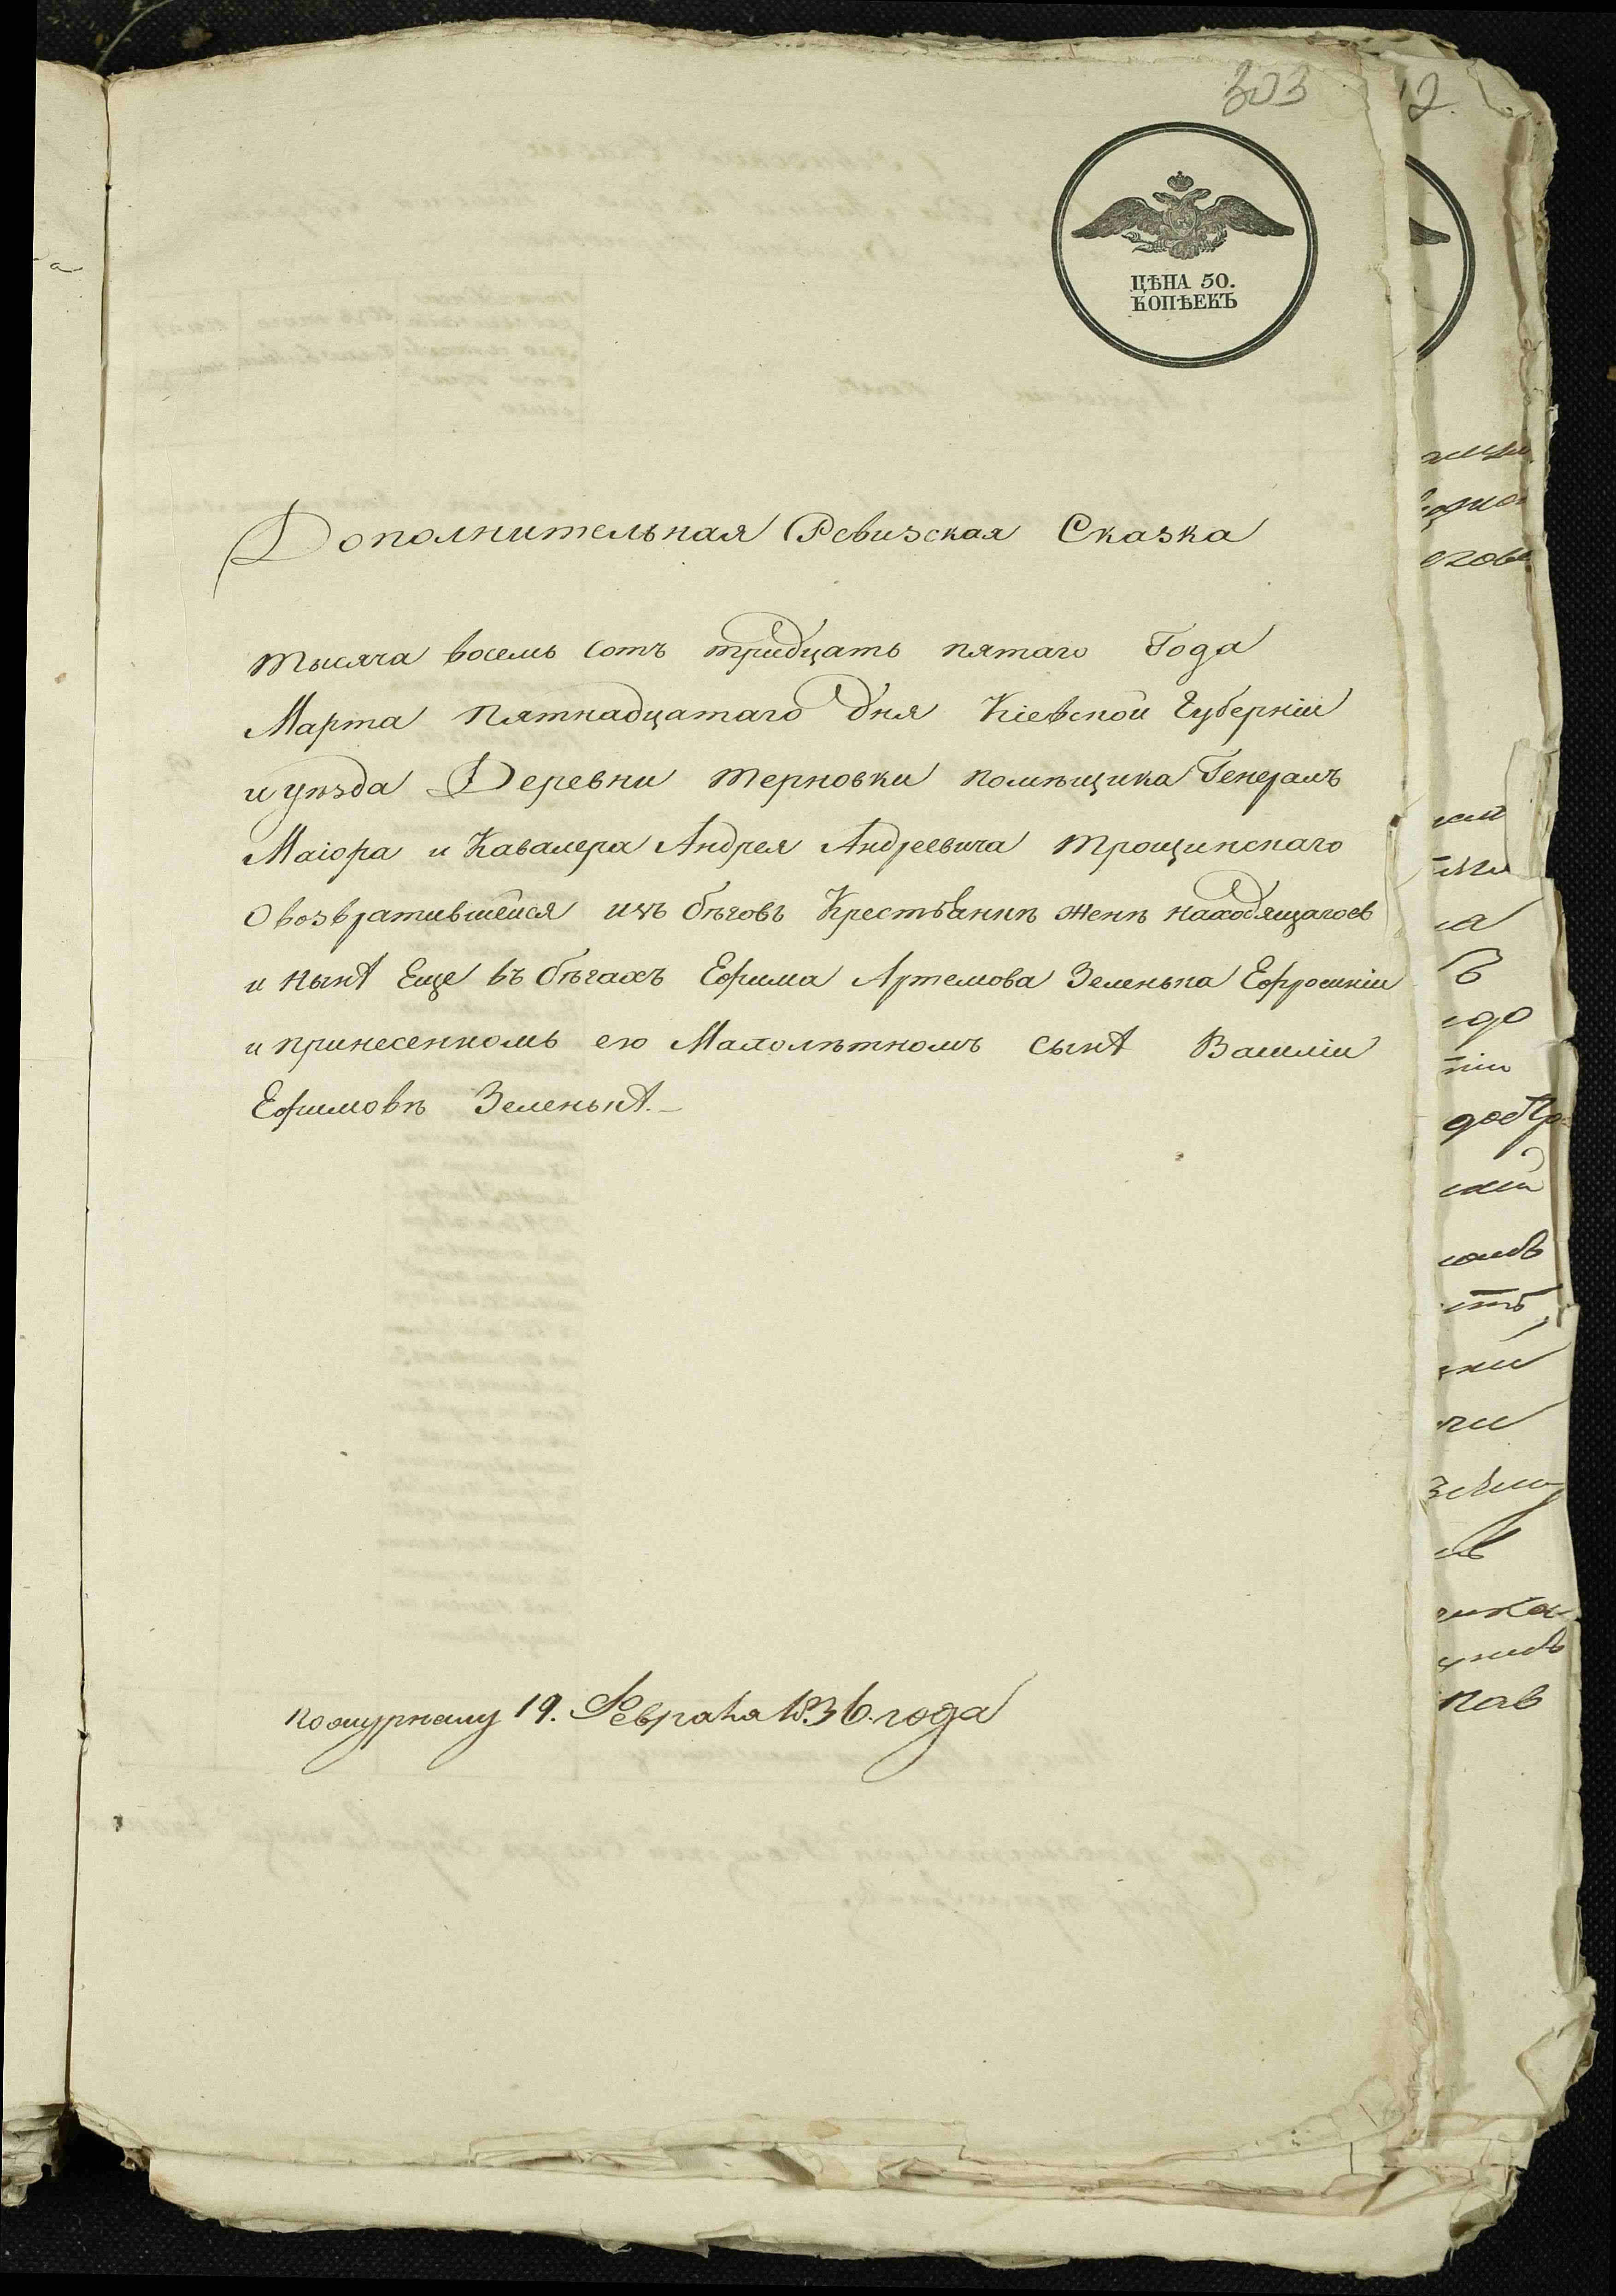 303
2.
ЦѢНА 50.
КОПѢЕКЪ
Дополнительная Ревизская Сказка
тысяча восемь сотъ тридцать пятаго Года
Марта пятнадцатаго дня Кіевской Губерніи
и уѣзда Деревни Терновки помѣщика Генералъ
Маіора и Кавалера Андрея Андреевича Трощинскаго
О возвратившейся изъ бѣговъ Крестьянкѣ женѣ находящагося
и нынѣ Еще въ бѣгахъ Ефима Артемова Зеленька Ефросиніи
и принесенномъ ею Малолѣтномъ сынѣ Василіи
Ефимовѣ Зеленькѣ.
по журналу 19. Февраля 1836. года